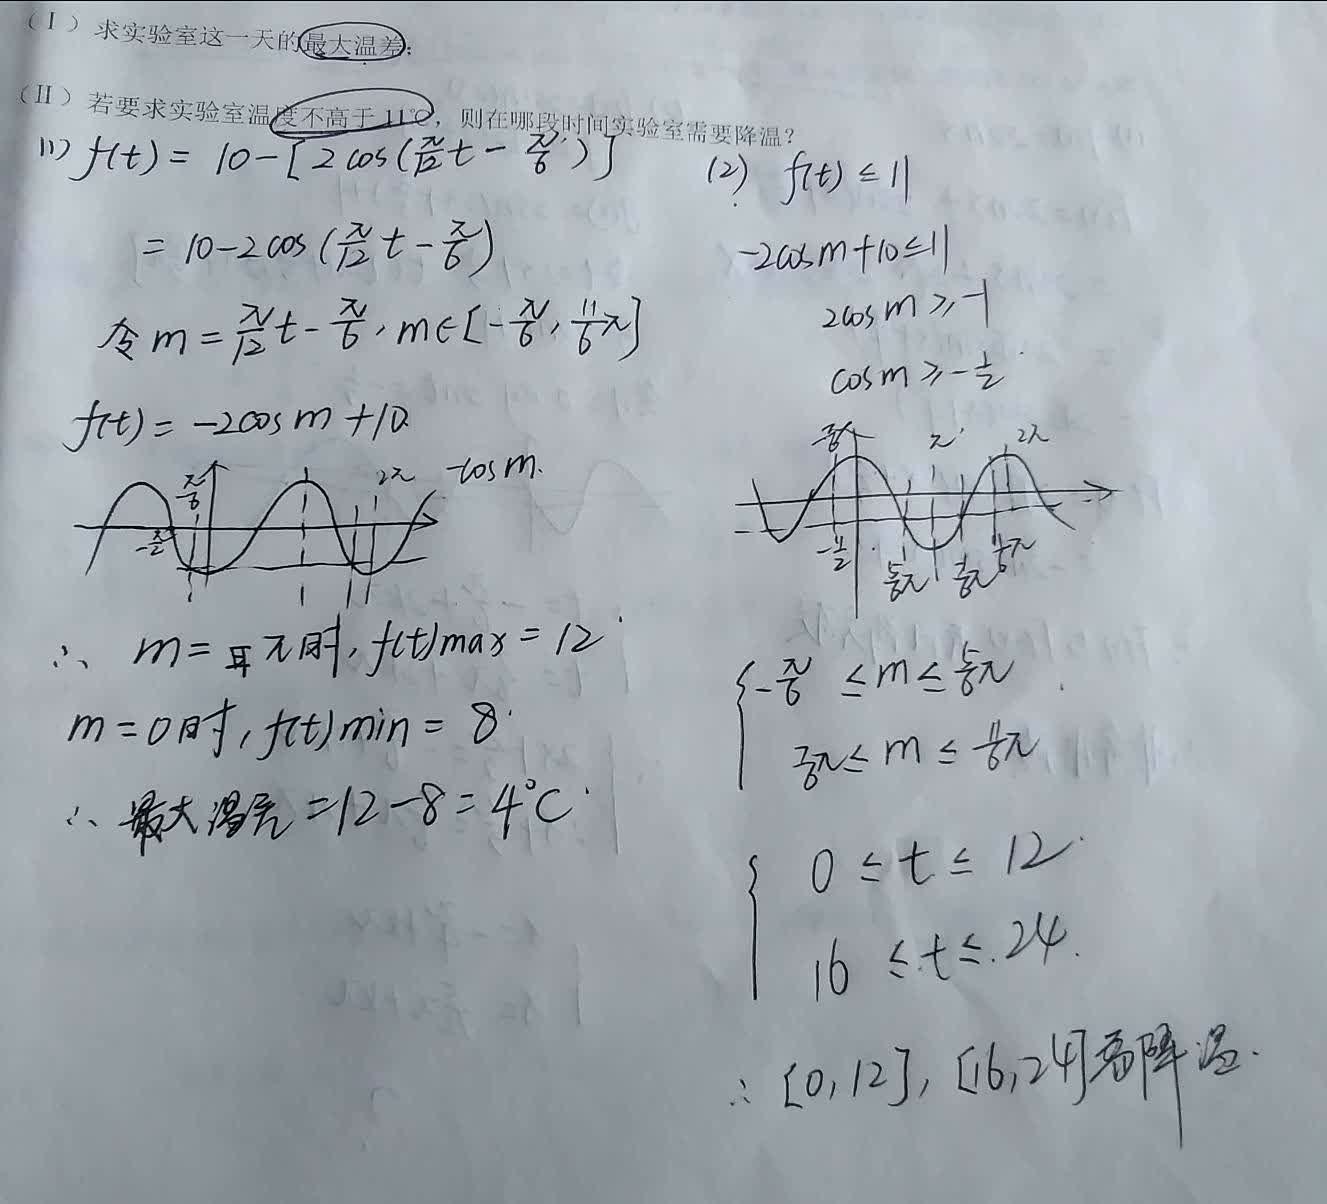 (Ⅰ)求实验室这一天的最大温差;
(Ⅱ)若要求实验室温度不高于11℃,则在哪段时间实验室需要降温?
(1) f(t) = 10-[2cos(π/12 t - π/6)]
= 10-2cos(π/12 t - π/6)
令m = π/12 t - π/6, m∈[-π/6, 11/6π]
f(t) = -2cosm+10
π/6
2π
-cosm.
-π/2
∴ m=π时, f(t)max = 12
m=0时, f(t)min = 8
∴ 最大温差=12-8=4°C
(2) f(t) ≤ 11
-2cosm+10≤11
2cosm ≥ -1
cosm ≥ -1/2
π
2π
-1/2
11/6π
{ -π/6 ≤ m ≤ 5/6π
≤ m ≤ 11/6π
{ 0 ≤ t ≤ 12
16 ≤ t ≤ 24.
∴ [0,12], [16,24]需降温.